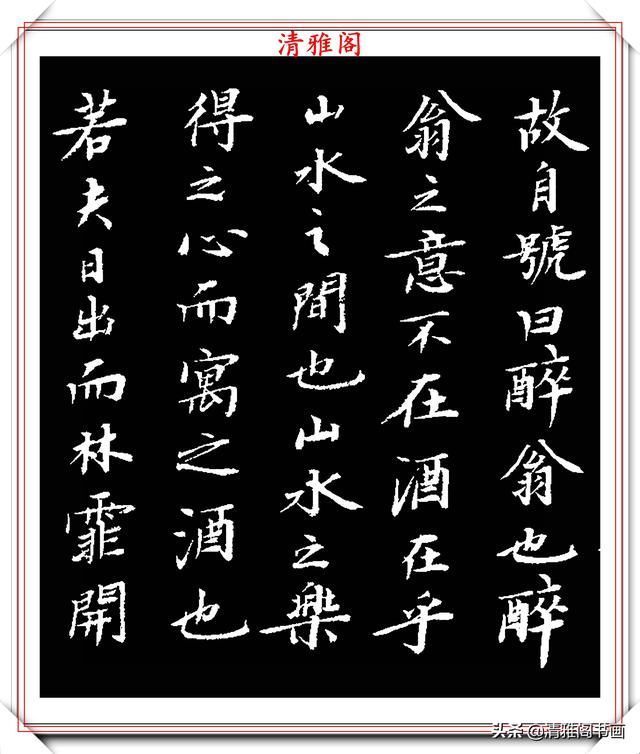 清雅阁
故自號曰醉翁也醉
翁之意不在酒在乎
山水之間也山水之樂
得之心而寓之酒也
若夫日出而林霏開
头条@清雅阁书画